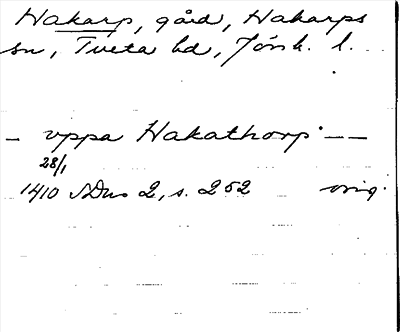 Hakarp, gård, Hakarps
sn, Tveta hd, Jönk. l.
- uppa Hakathorp - -
28/1
1410 SDns 2, s. 252 orig.